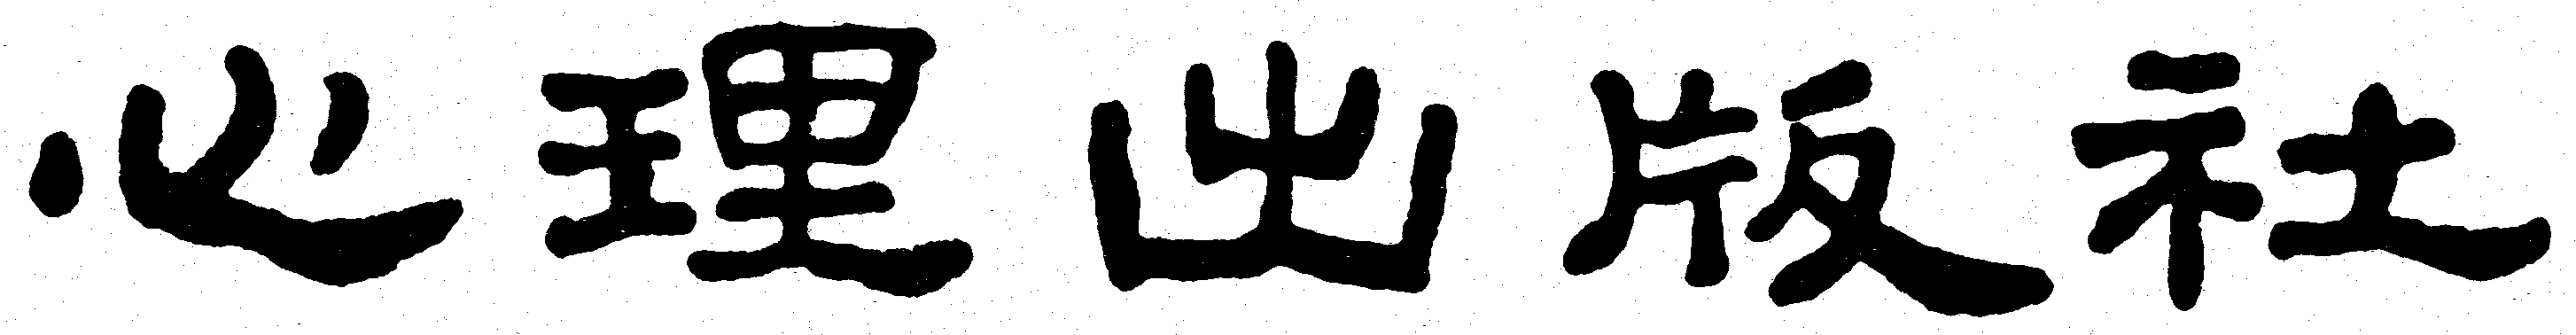 心理出版社